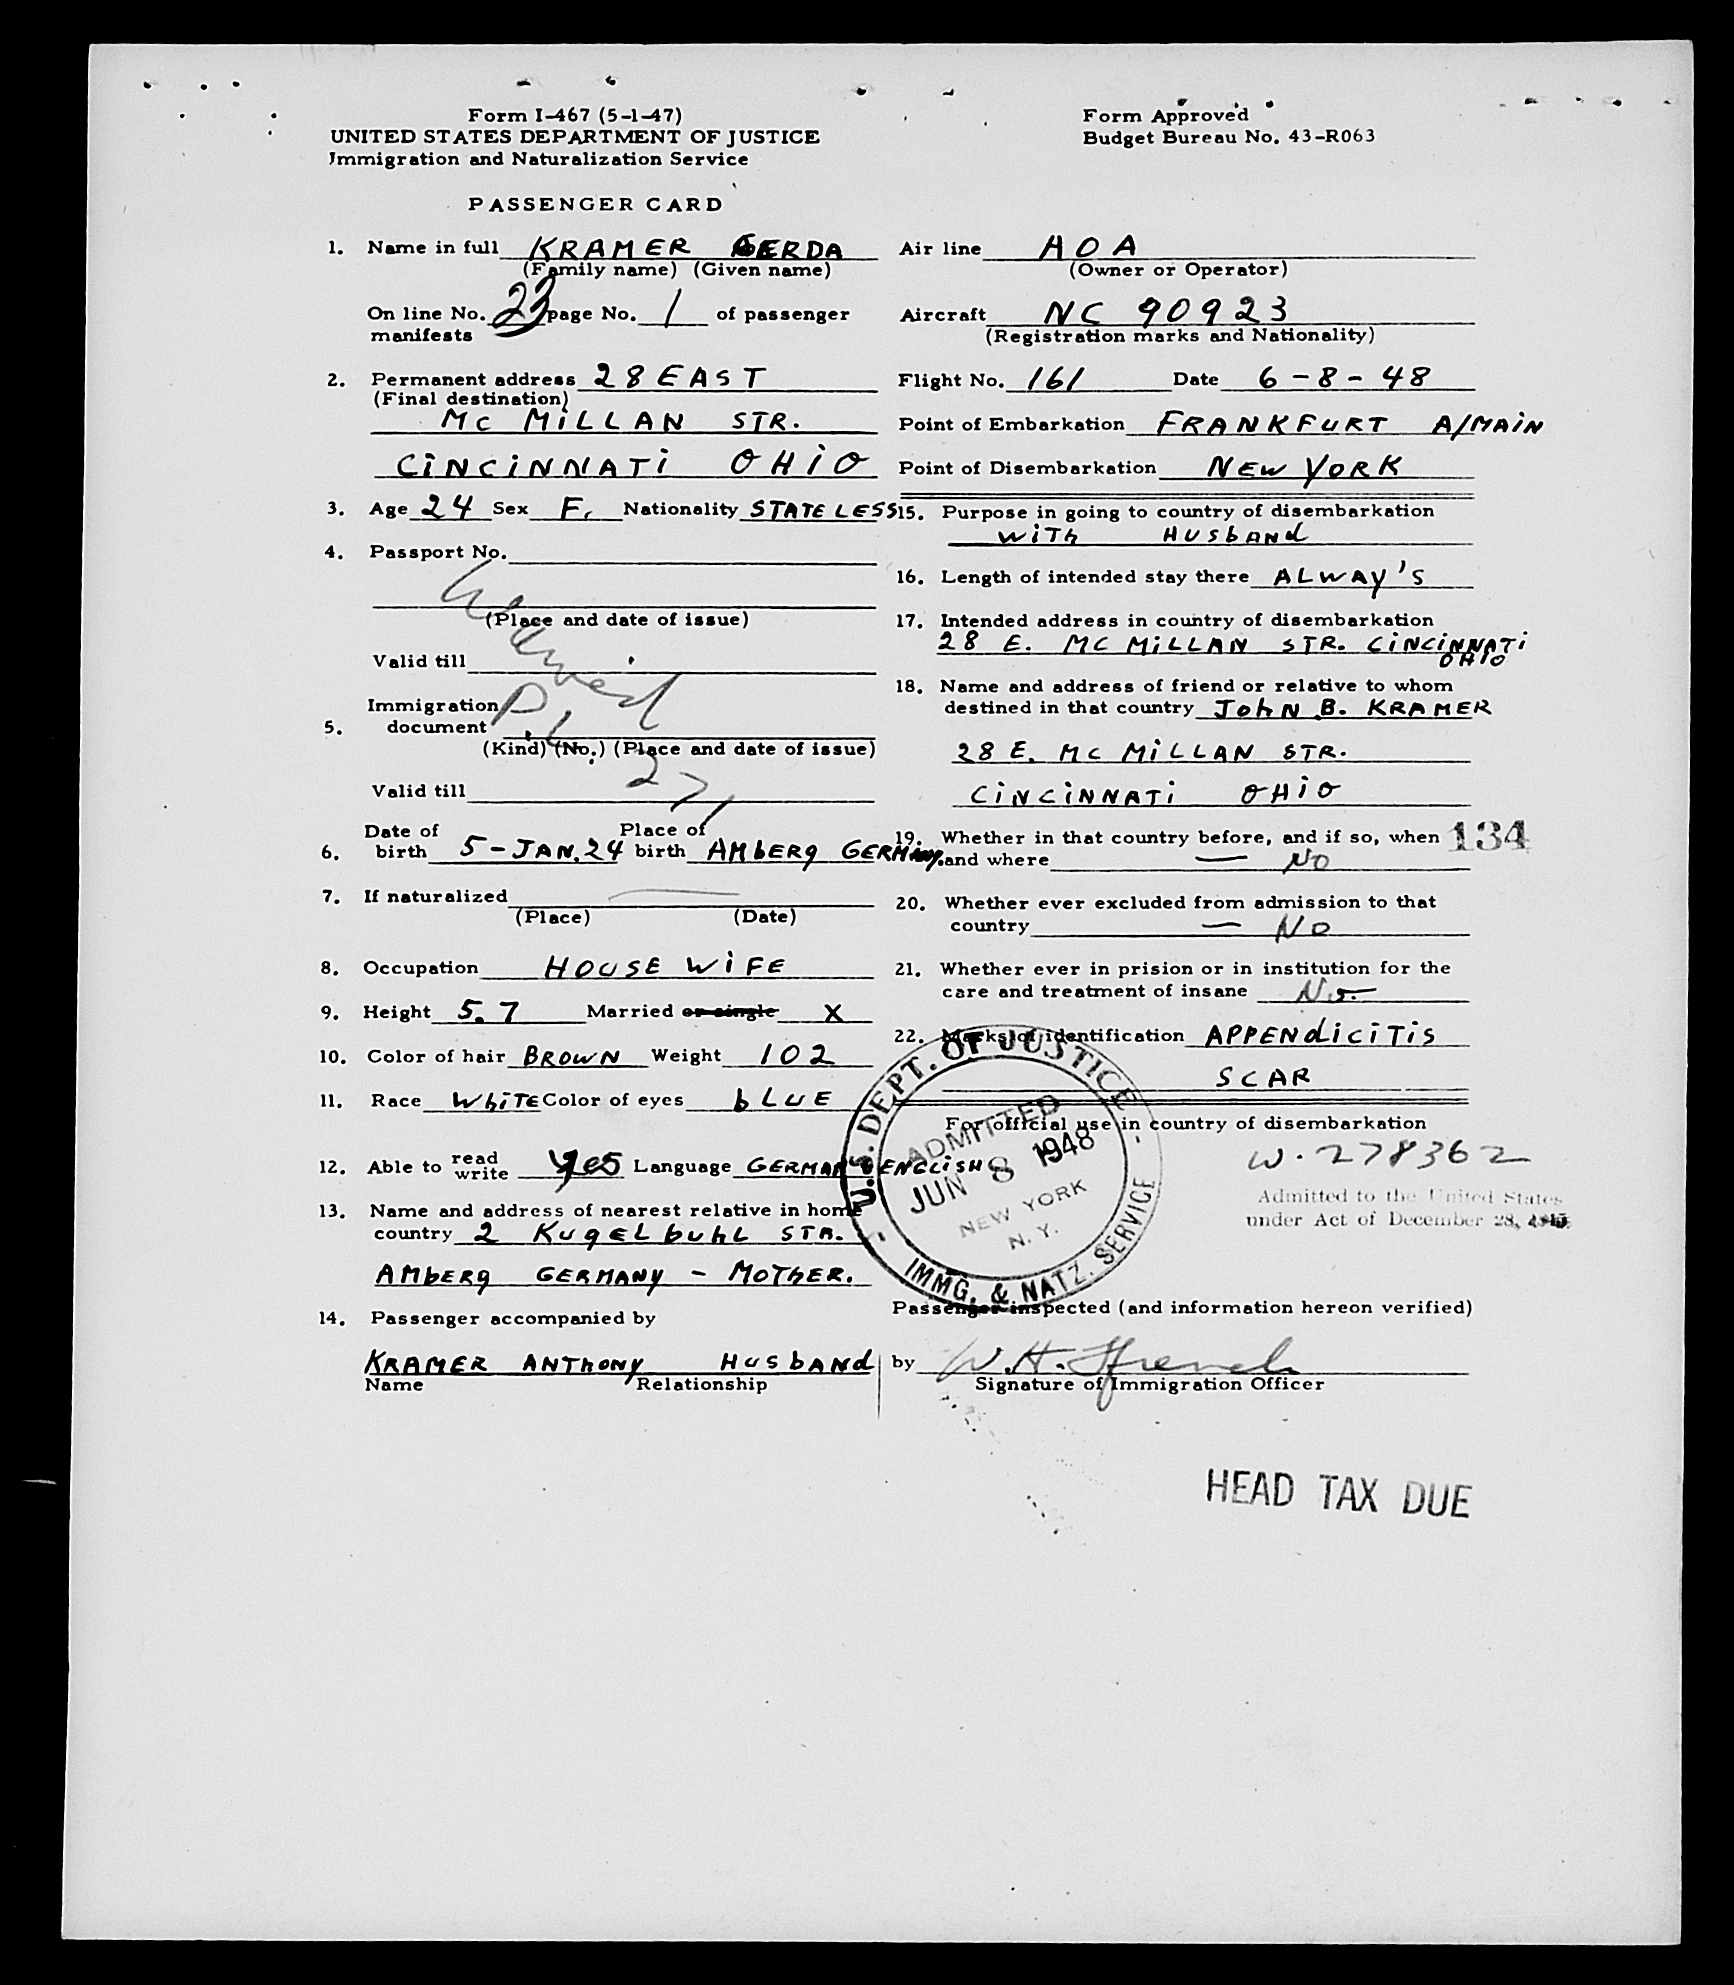 Form I-467 (5-1-47)
UNITED STATES DEPARTMENT OF JUSTICE
Immigration and Naturalization Service
Form Approved
Budget Bureau No. 43-R063
PASSENGER CARD
1. Name in full KRAMER GERDA
(Family name) (Given name)
On line No. 23 page No. 1 of passenger
manifests
2. Permanent address 28 EAST
(Final destination)
MC MiLLAN STR.
CiNCiNNATi OHiO
3. Age 24 Sex F. Nationality STATELESS
4. Passport No.
Waived
(Place and date of issue)
Valid till
Immigration
5. document
(Kind) (No.) (Place and date of issue)
Valid till
Date of Place of
6. birth 5-JAN.24 birth AMbERg GERMANy.
7. If naturalized
(Place) (Date)
8. Occupation HOUSE WiFE
9. Height 5.7 Married or single X
10. Color of hair BROWN Weight 102
11. Race WhiTE Color of eyes bLUE
12. Able to read write yes Language GERMAN ENGLiSH
13. Name and address of nearest relative in home
country 2 KUgELbUhL STR.
AMbERg GERMANy - MOThER.
14. Passenger accompanied by
KRAMER ANThONy HUSbANd
Name Relationship
Air line AOA
(Owner or Operator)
Aircraft NC 90923
(Registration marks and Nationality)
Flight No. 161 Date 6-8-48
Point of Embarkation FRANKFURT A/MAiN
Point of Disembarkation NEW YORK
15. Purpose in going to country of disembarkation
WiTh HUSbANd
16. Length of intended stay there ALWAy'S
17. Intended address in country of disembarkation
28 E. MC MiLLAN STR. CiNCiNNATi
OHiO
18. Name and address of friend or relative to whom
destined in that country JOhN B. KRAMER
28 E. MC MiLLAN STR.
CiNCiNNATi OHiO
19. Whether in that country before, and if so, when 134
and where — NO
20. Whether ever excluded from admission to that
country — NO
21. Whether ever in prision or in institution for the
care and treatment of insane No.
22. Marks of identification APPENdiCiTiS
SCAR
For official use in country of disembarkation
W. 278362
Admitted to the United States
under Act of December 28, 1945
U.S. DEPT. OF JUSTICE
ADMITTED
JUN 8 1948
NEW YORK
N. Y.
IMMG. & NATZ. SERVICE
Passenger inspected (and information hereon verified)
by W.H. Ffrench
Signature of Immigration Officer
HEAD TAX DUE